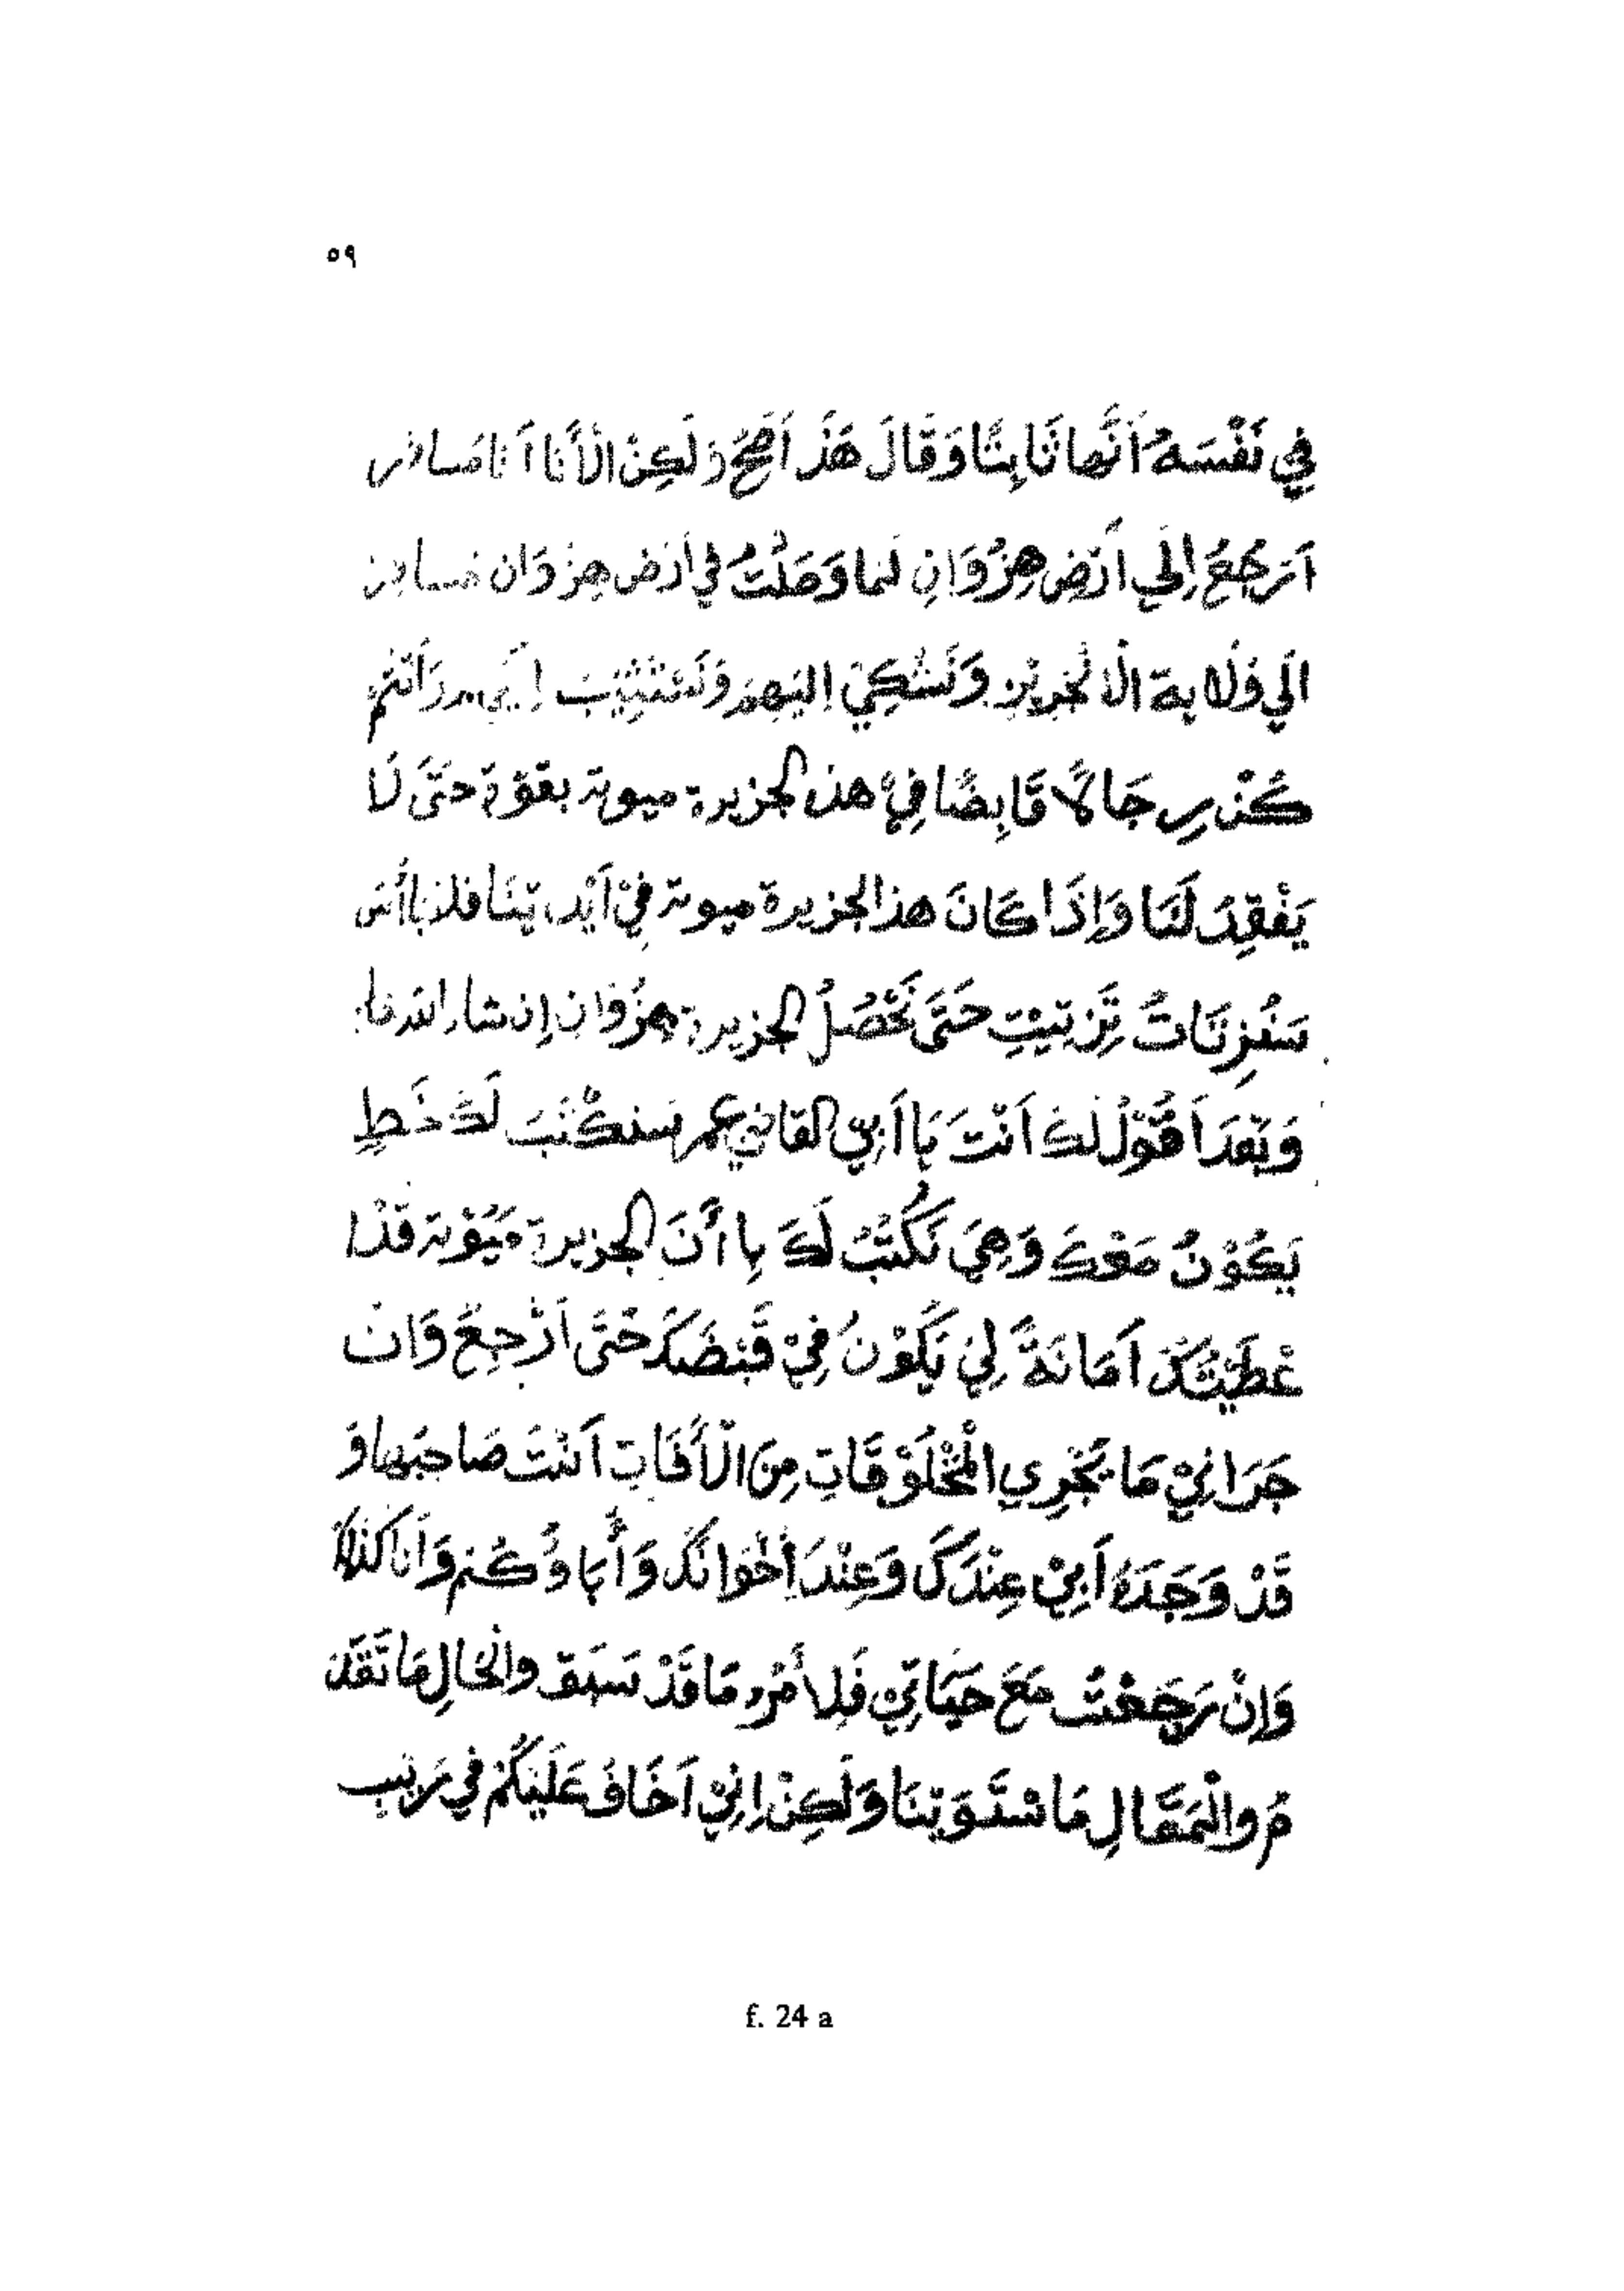 ٥٩
فِي نَفْسَهُ أَنَّهَا ثَابِتًا وَقَالَ هَذَ اَصَحُّ وَلَكِنْ الْأَنَا اَنَا مُسَافِر
اَرْجِعُ إِلَي أَرْضِ هِزْوَانِ لَمَا وَصَلْتُ فِي أَرْضِ هِزْوَان مُسَافِر
اَلِي وَلَايَة وَنَشْكِيْ اِلَيْهِمْ
رِجَالًا قَابِضًا فِيْ هذ الجزيرة ميوتة بقوّة حَتَّى لَا
يَفْقِدَ لَنَا وَإِذَا كَانَ هذ الجزيرة ميوتة فِيْ اَيْدِيْنَا فلا بَاأْسَ
حَتَّى تَحْصُلُ الجزيرة هِزْوَان إِن شاء الله
وَبَعْدَ اَقُوْلُ لَكَ اَنْتَ يَا اَبِي القاضي عمر سَنَكْتَبَ لَكَ خَطِ
يَكُوْنُ مَعْكَ وَهِيَ نَكْتُبُ لَكَ بِاأَنَ الجزيرة مَيُوْتة قَدْ ا
عْطَيْتُكَ اَمَانَةً لِيْ يَكُوْنُ فِيْ قَبْضَكَ حَتَّى اَرْجِعَ وَانْ
جَرَانِيْ مَا يَجْرِي الْمَخْلُوْقَاتِ مِنَ الْأَفَاتِ اَنْتَ صَاحِبُهَا وَ
قَدْ وَجَدَهُ اَبِيْ عِنْدَكَ وَعِنْدَ اَخْوَانَكَ وَأَبَاؤُكُمْ وَاَنَا كَذَلِكَ
وَاِنْ رَجَعْتُ مَعَ حَيَاتِيْ فَلِأَمْرِ مَا قَدْ سَبَقَ وَالْحَالِ مَا تَقَدَّ
مُ وَالْمَقَالِ مَا سْتَوَيْنَا وَلَكِنْ اِنِّيْ اَخَافُ عَلَيْكُمْ فِي
f. 24 a